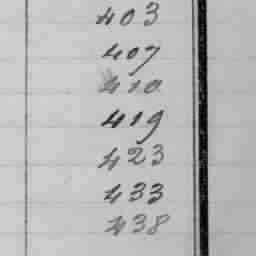 403
407
410
419
423
433
438